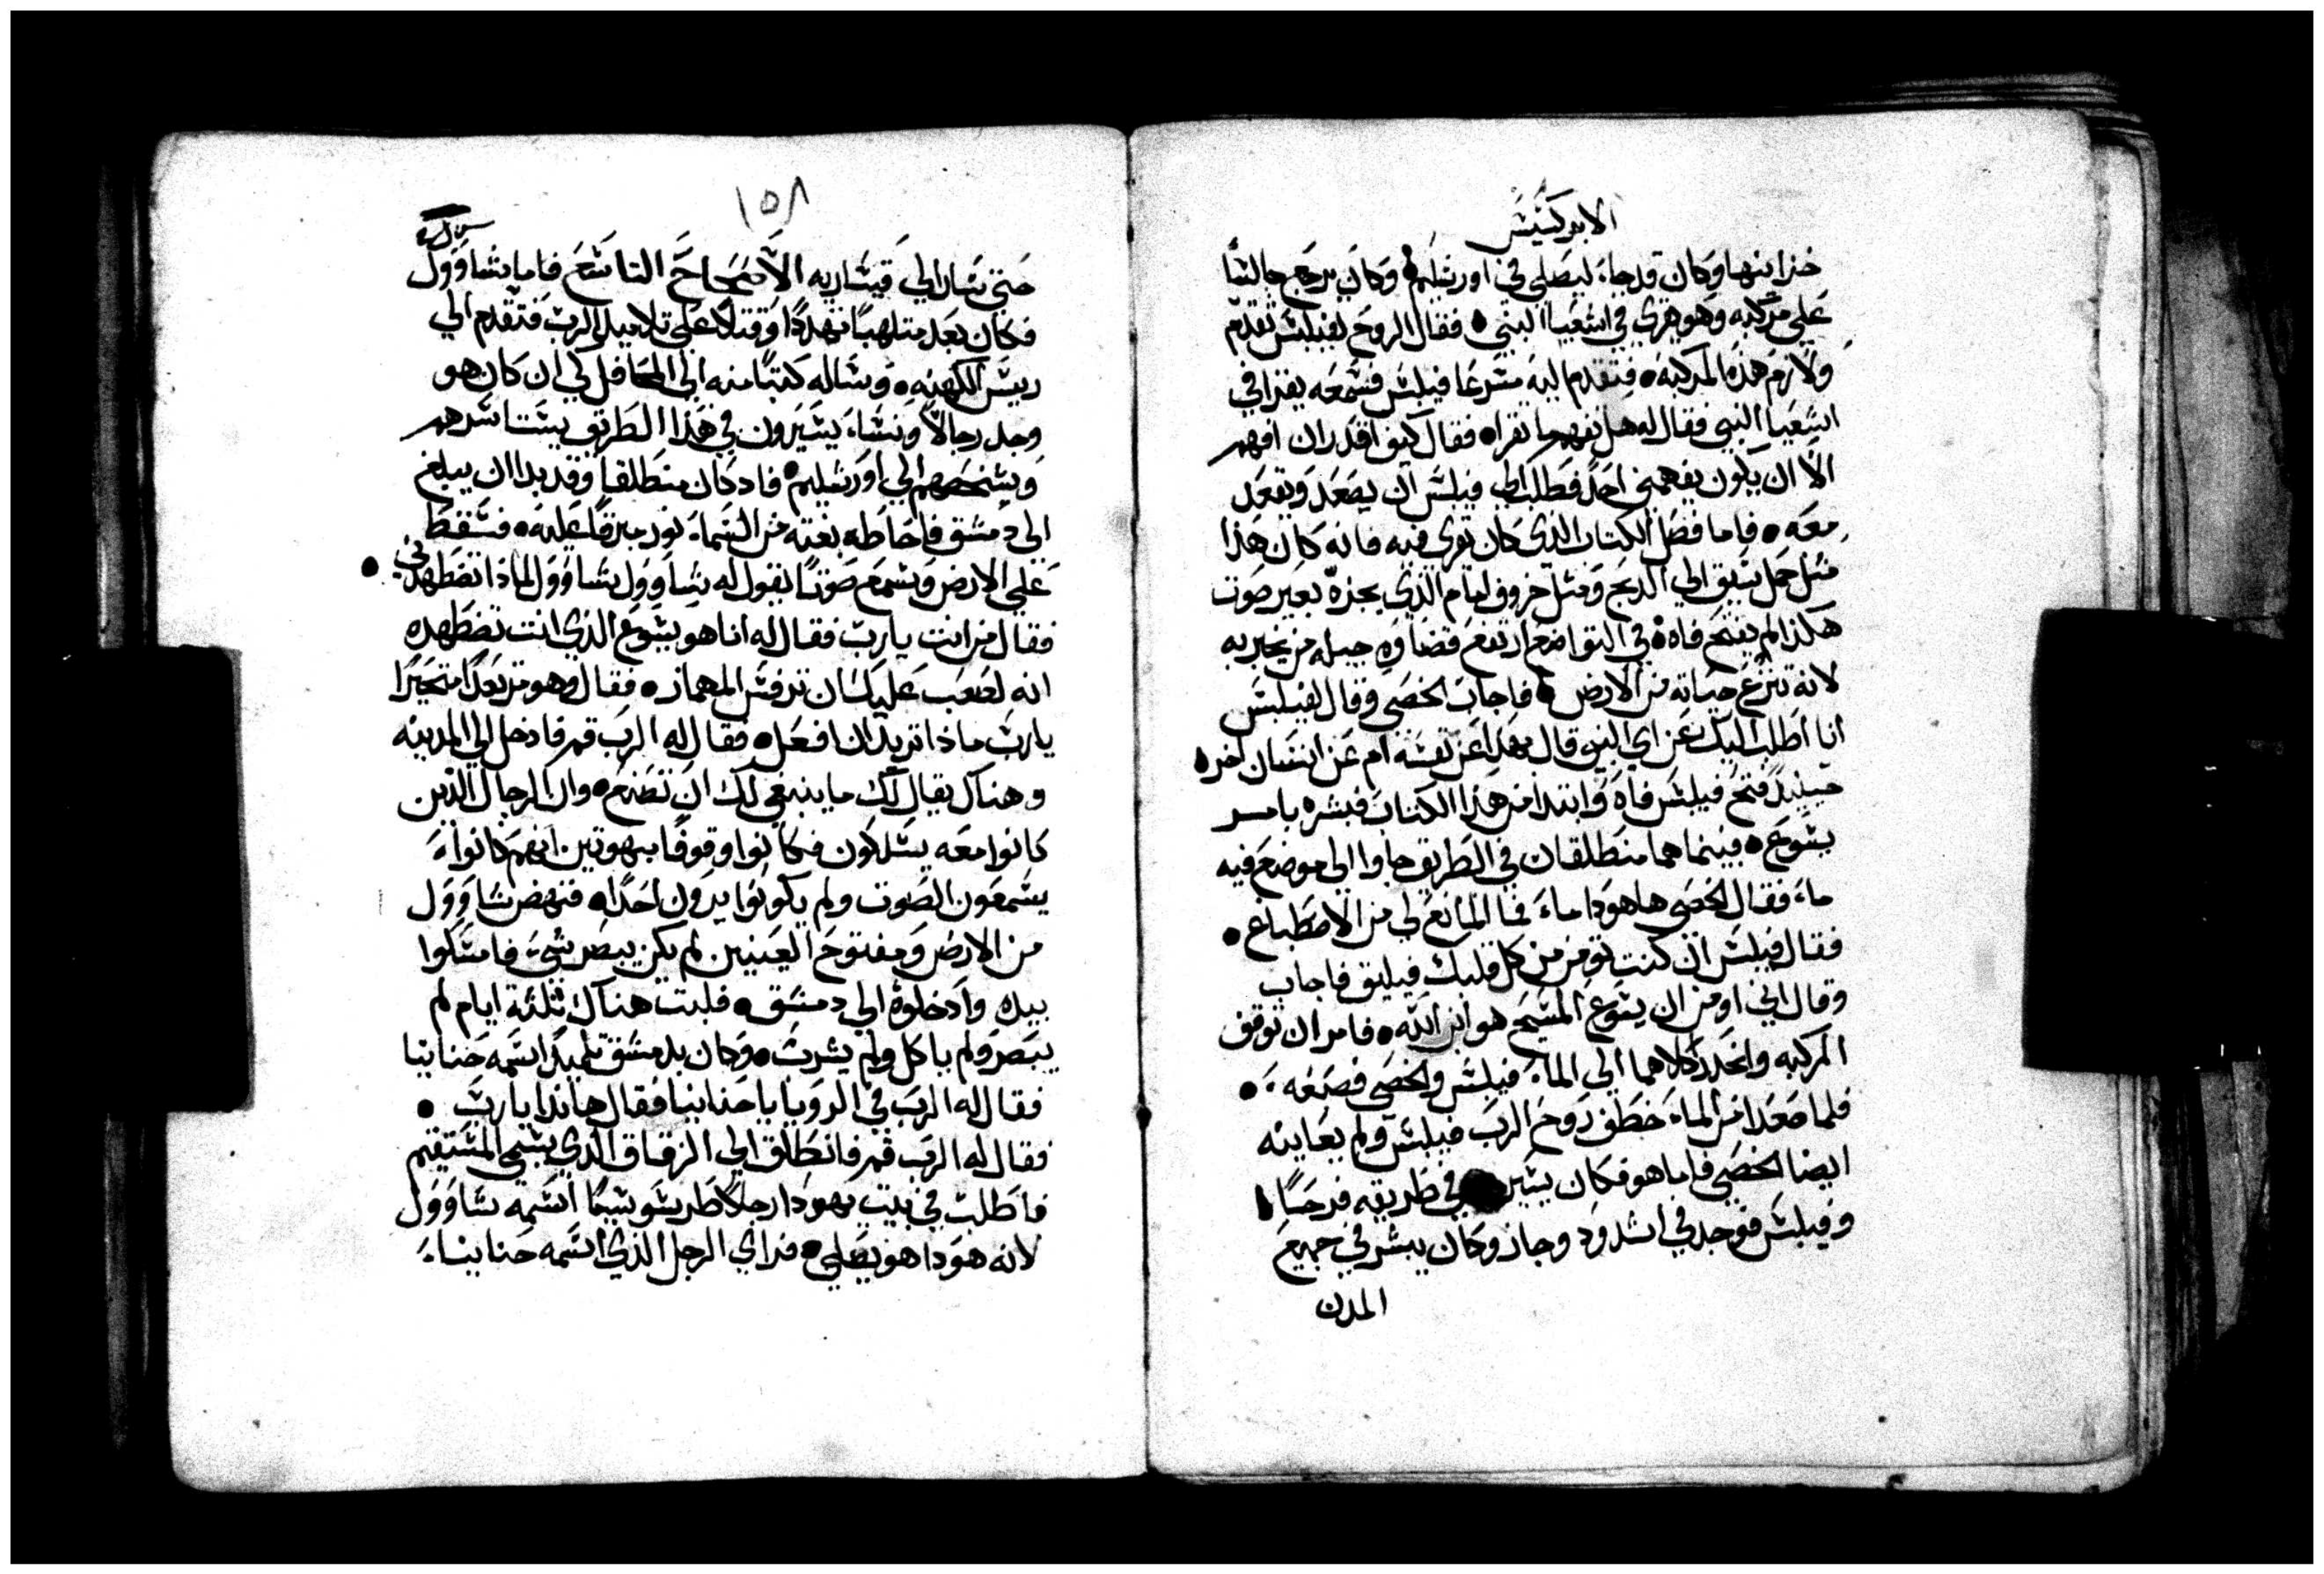 الابركسيس
خزاينها وكان قد جاء ليصلي في اورشليم وكان يرجع جالسًا
علي مركبه وهو يقري في اشعيا النبي فقال الروح لفيلبس تقدم
ولازم هذه المركبه فتقدم اليه مسرعا فيلبس فسمعه يقرا في
اشعيا النبي فقال له هل تفهم ما تقراه فقال كيف اقدر ان افهم
الا ان يكون يفهمني احد فطلب الي فيلبس ان يصعد ويقعد
معه فاما فصل الكتاب الذي كان يقري فيه فانه كان هذا
مثل حمل سيق الي الدبح ومثل خروف امام الذي يجزه بغير صوت
هكذا لم يفتح فاه في التواضع ارتفع قضاوه جيله من يخبر به
لانه تنزع حياته من الارض فاجاب الخصي وقال لفيلبس
انا اطلب اليك عن اي النبي قال هذا عن نفسه ام عن انسان اخر
حينيد فتح فيلبس فاه وابتدا من هذا الكتاب فبشره بامر
يشوع فبينما هما منطلقان في الطريق جاوا الي موضع فيه
ماء فقال الخصي ها هودا ماء فما المانع لي من الاصطباغ
فقال فيلبس ان كنت تومن من كل قلبك فيليق فاجاب
وقال اني اومن ان يشوع المسيح هو ابن الله فامر ان توقف
المركبه وانحدر كلاهما الي الماء فيلبس والخصي فصبغه
فلما صعدا من الماء خطف روح الرب فيلبس ولم يعاينه
ايضا الخصي فاما هو فكان يسير في طريقه فرحًا
وفيلبس فوجد في اشدود وجاز وكان يبشر في جميع
المدن
١٥٨
حتي سار الي قيساريه الاصحاح التاسع فاما شاوول
فكان بعد متلهبًا تهددًا وقتلا علي تلاميد الرب فتقدم الي
ريس الكهنه وساله كتبًا منه الي المحافل لكي ان كان هو
وجد رجالا ونساء يسيرون في هذا الطريق يستاسرهم
ويشخصهم الي اورشليم فاد كان منطلقا وقد بدا ان يبلغ
الي دمشق فاحاطه بغته من السماء نور مبرقا عليه فسقط
علي الارض وسمع صوتًا يقول له شاوول شاوول لماذا تضطهدني
فقال من انت يارب فقال له انا هو يشوع الذي انت تضطهده
انه لصعب عليك ان ترفس المهماز فقال وهو مرتعدًا متحيرًا
يارب ماذا تريد ان افعل فقال له الرب قم فادخل الي المدينه
وهناك يقال لك ما ينبغي لك ان تصنع وان الرجال الذين
كانوا معه يسلكون فكانوا وقوفًا مبهوتين انهم كانوا
يسمعون الصوت ولم يكونوا يرون احدًا فنهض شاوول
من الارض ومفتوح العينين لم يكن يبصر شي فامسكوا
بيده وادخلوه الي دمشق فلبت هناك ثلثة ايام لم
يبصر ولم ياكل ولم يشرب وكان بدمشق تلميدًا اسمه حنانيا
فقال له الرب في الرويا يا حنانيا فقال هانذا يارب
فقال له الرب قم فانطلق الي الزقاق الذي يسمي المستقيم
فاطلب في بيت يهودا رجلا طرسوسيًا اسمه شاوول
لانه هودا هو يصلي فراي الرجل الذي اسمه حنانيا